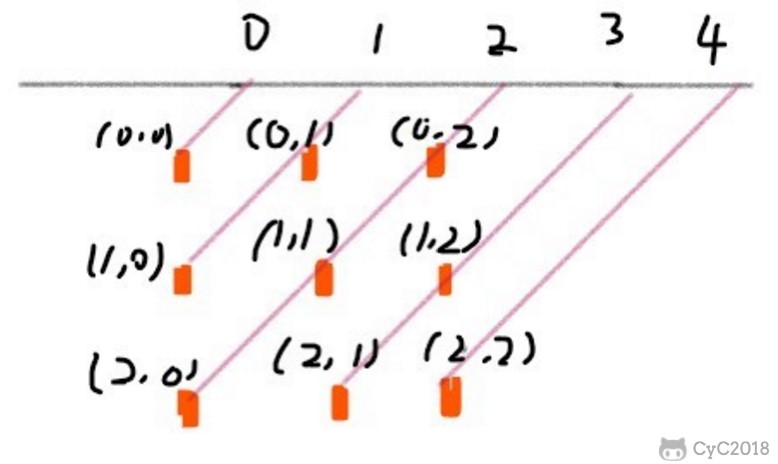 0 1 2 3 4
(0.0) (0,1) (0.2)
(1,0) (1,1) (1.2)
(2.0) (2,1) (2.2)
CyC2018